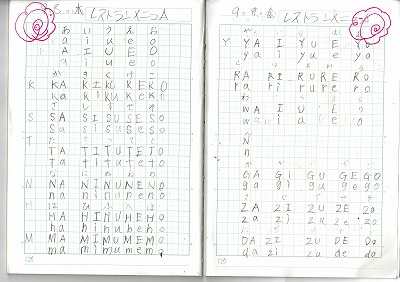 レストランメニュー
あ い う え お
a i u e o
A I U E O
か き く け こ
K KA KI KU KE KO
ka ki ku ke ko
さ し す せ そ
S SA SI SU SE SO
sa si su se so
T
TA TI TU TE TO
ta ti tu te to
N NA NI NU NE NO
na ni nu ne no
H は ひ ふ
HA HI HU HE HO
ha hi hu he ho
M MA MI MU ME MO
ma mi mu me mo
レストランメニュー
Y YA I YU E YO
ya i yu e yo
RA RI RU RE RO
ra ri ru re ro
WA I U E
wa i u e
N
n
GA GI GU GE GO
ga gi gu ge go
ZA ZI ZU ZE ZO
za zi zu ze zo
DA ZI ZU DE DO
da zi zu de do